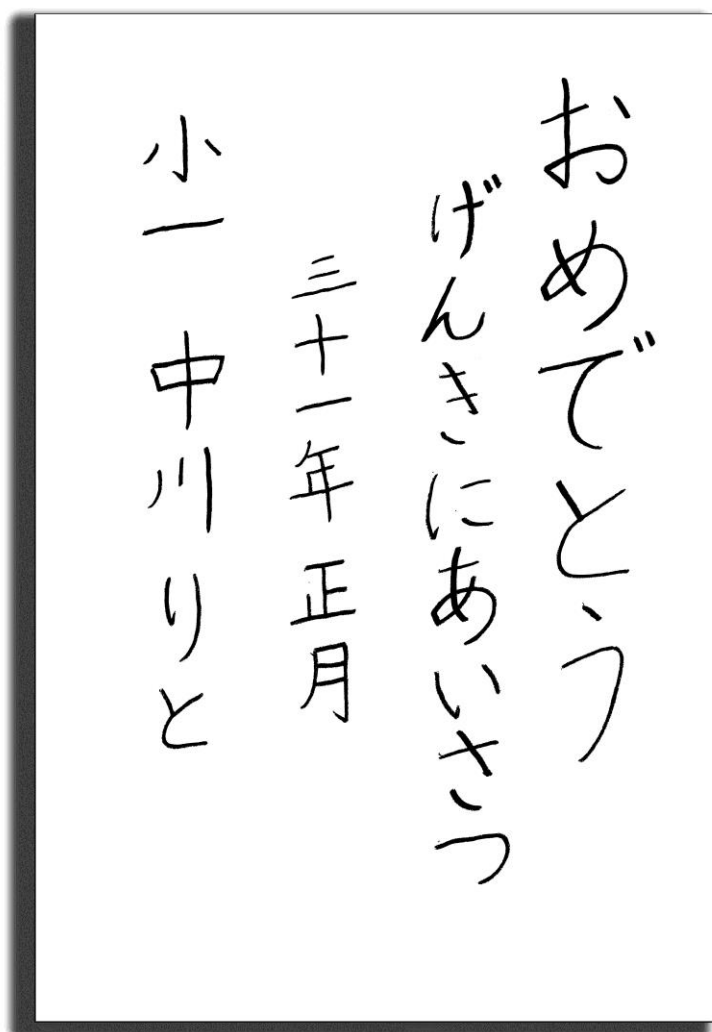 おめでとう
げんきにあいさつ
三十一年 正月
小一 中川りと